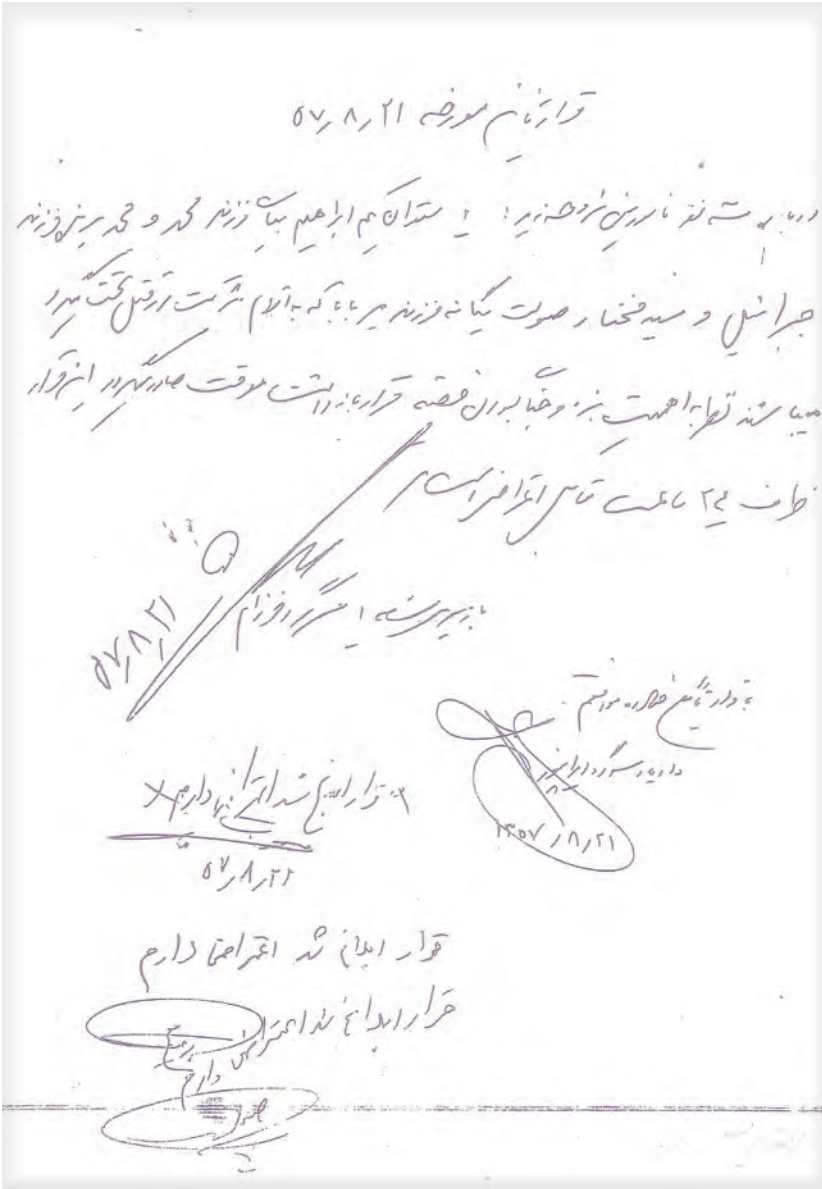 قرار تامین مورخه ۵۷٫۸٫۲۱
درباره سه نفر نامبردین مشروحه زیر: ستوان یکم ابراهیم بیات فرزند محمد و محمد فرزند
جبرائیل و سید فختار صولت یگانه فرزند میر بابا که به اتهام شرکت در قتل تحت پیگرد
میباشند نظر به اهمیت بزه و جنبائی بودن قضیه قرار بازداشت موقت صادر میگردد این قرار
ظرف ۲۴ ساعت قابل اعتراض است
بازپرس شعبه ۱ سرگرد فرزام
۵۷٫۸٫۲۱
با قرار تامین صادره موافقم
دادیار سرگرد
۱۳۵۷٫۸٫۲۱
قرار ابلاغ شد اعتراض دارم
۵۷٫۸٫۲۲
قرار ابلاغ شد اعتراض دارم
قرار ابلاغ شد اعتراض
دارم